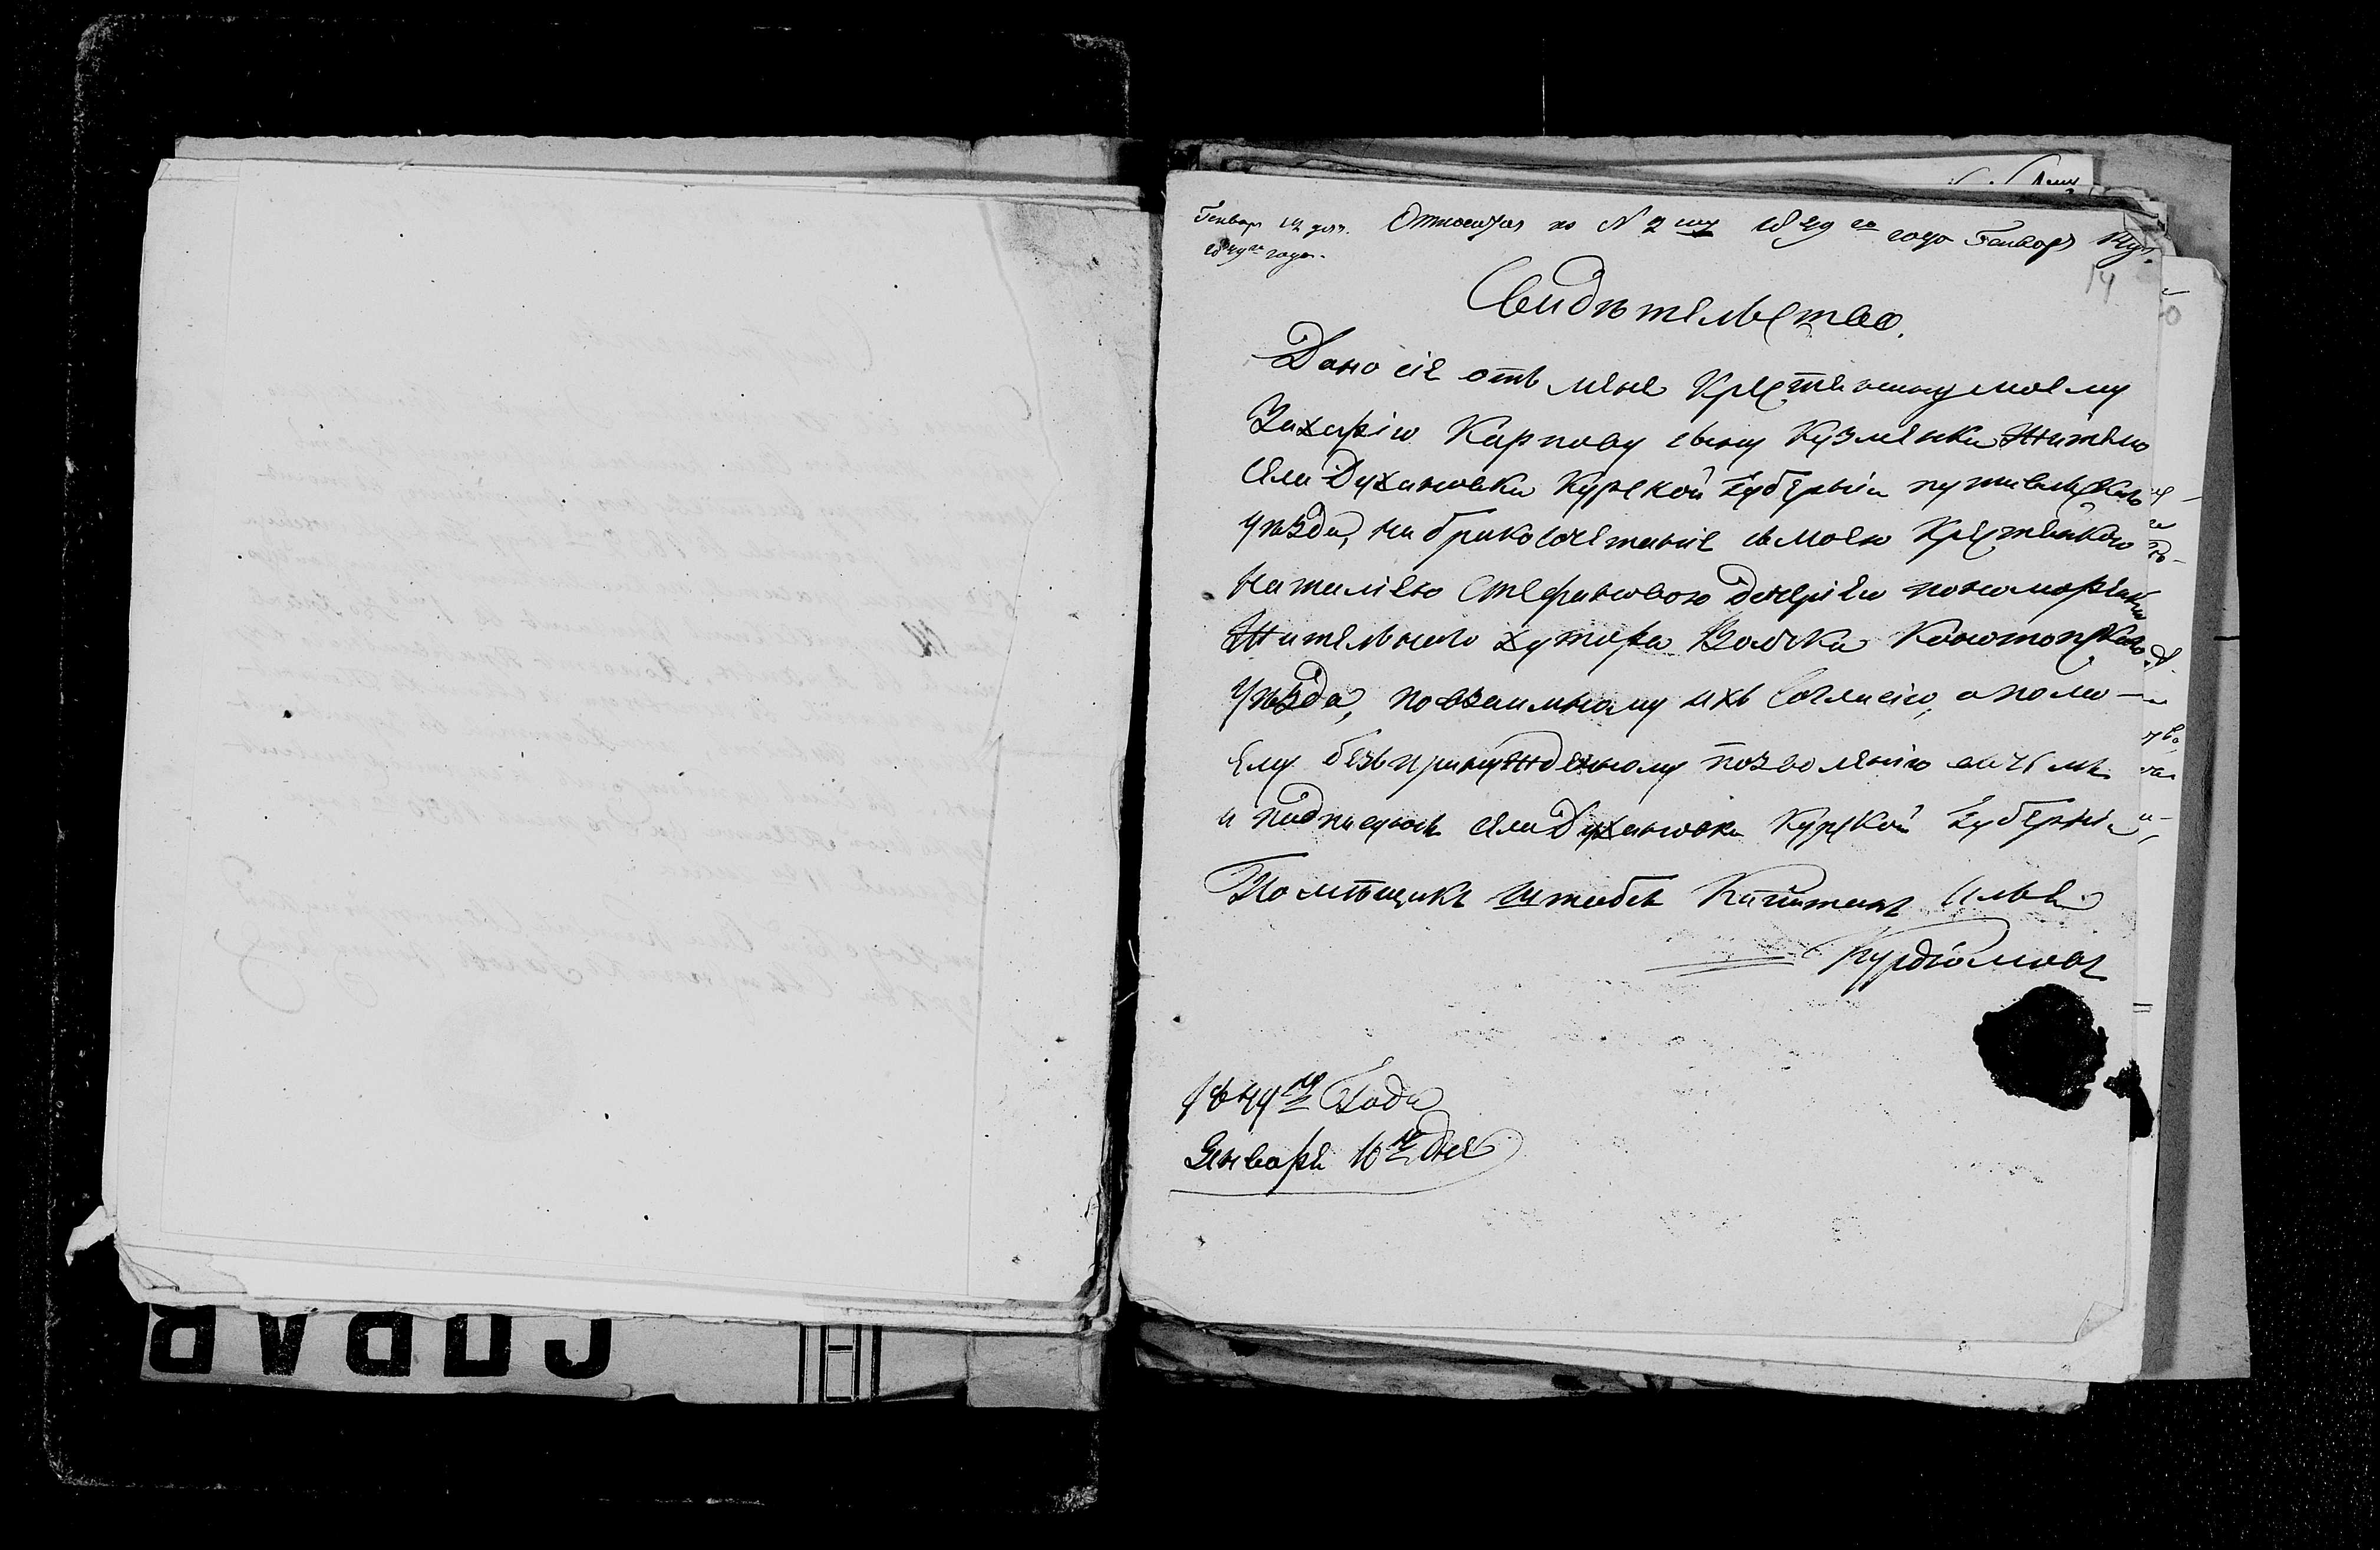 Генваря 14 дня. Относится к № 2му 1849го года Генваря 14 дн.
1849го года.
14
Свидѣтельство.
Дано сіе отъ мене Крестенину моему
Захарію Карпову сыну Кузменки Жителю
Села Духановки Курской Губерніи путивльскаго
Уѣзда, на бракосочетаніе съ моею Крестенкою
Наталіею Стефановою дочеріею пономаренкиной
Жительною хутора Конотопскаго
Уѣзда, по взаимному ихъ Согласію, а по мо-
ему безъ принужденному позволенію въ чемъ
и подписуюсь Села Духановки Курской Губерніи
Помѣщикъ Штабсъ Капитанъ Илья
Курдюмовъ
1849го Года
Январе 10го дне